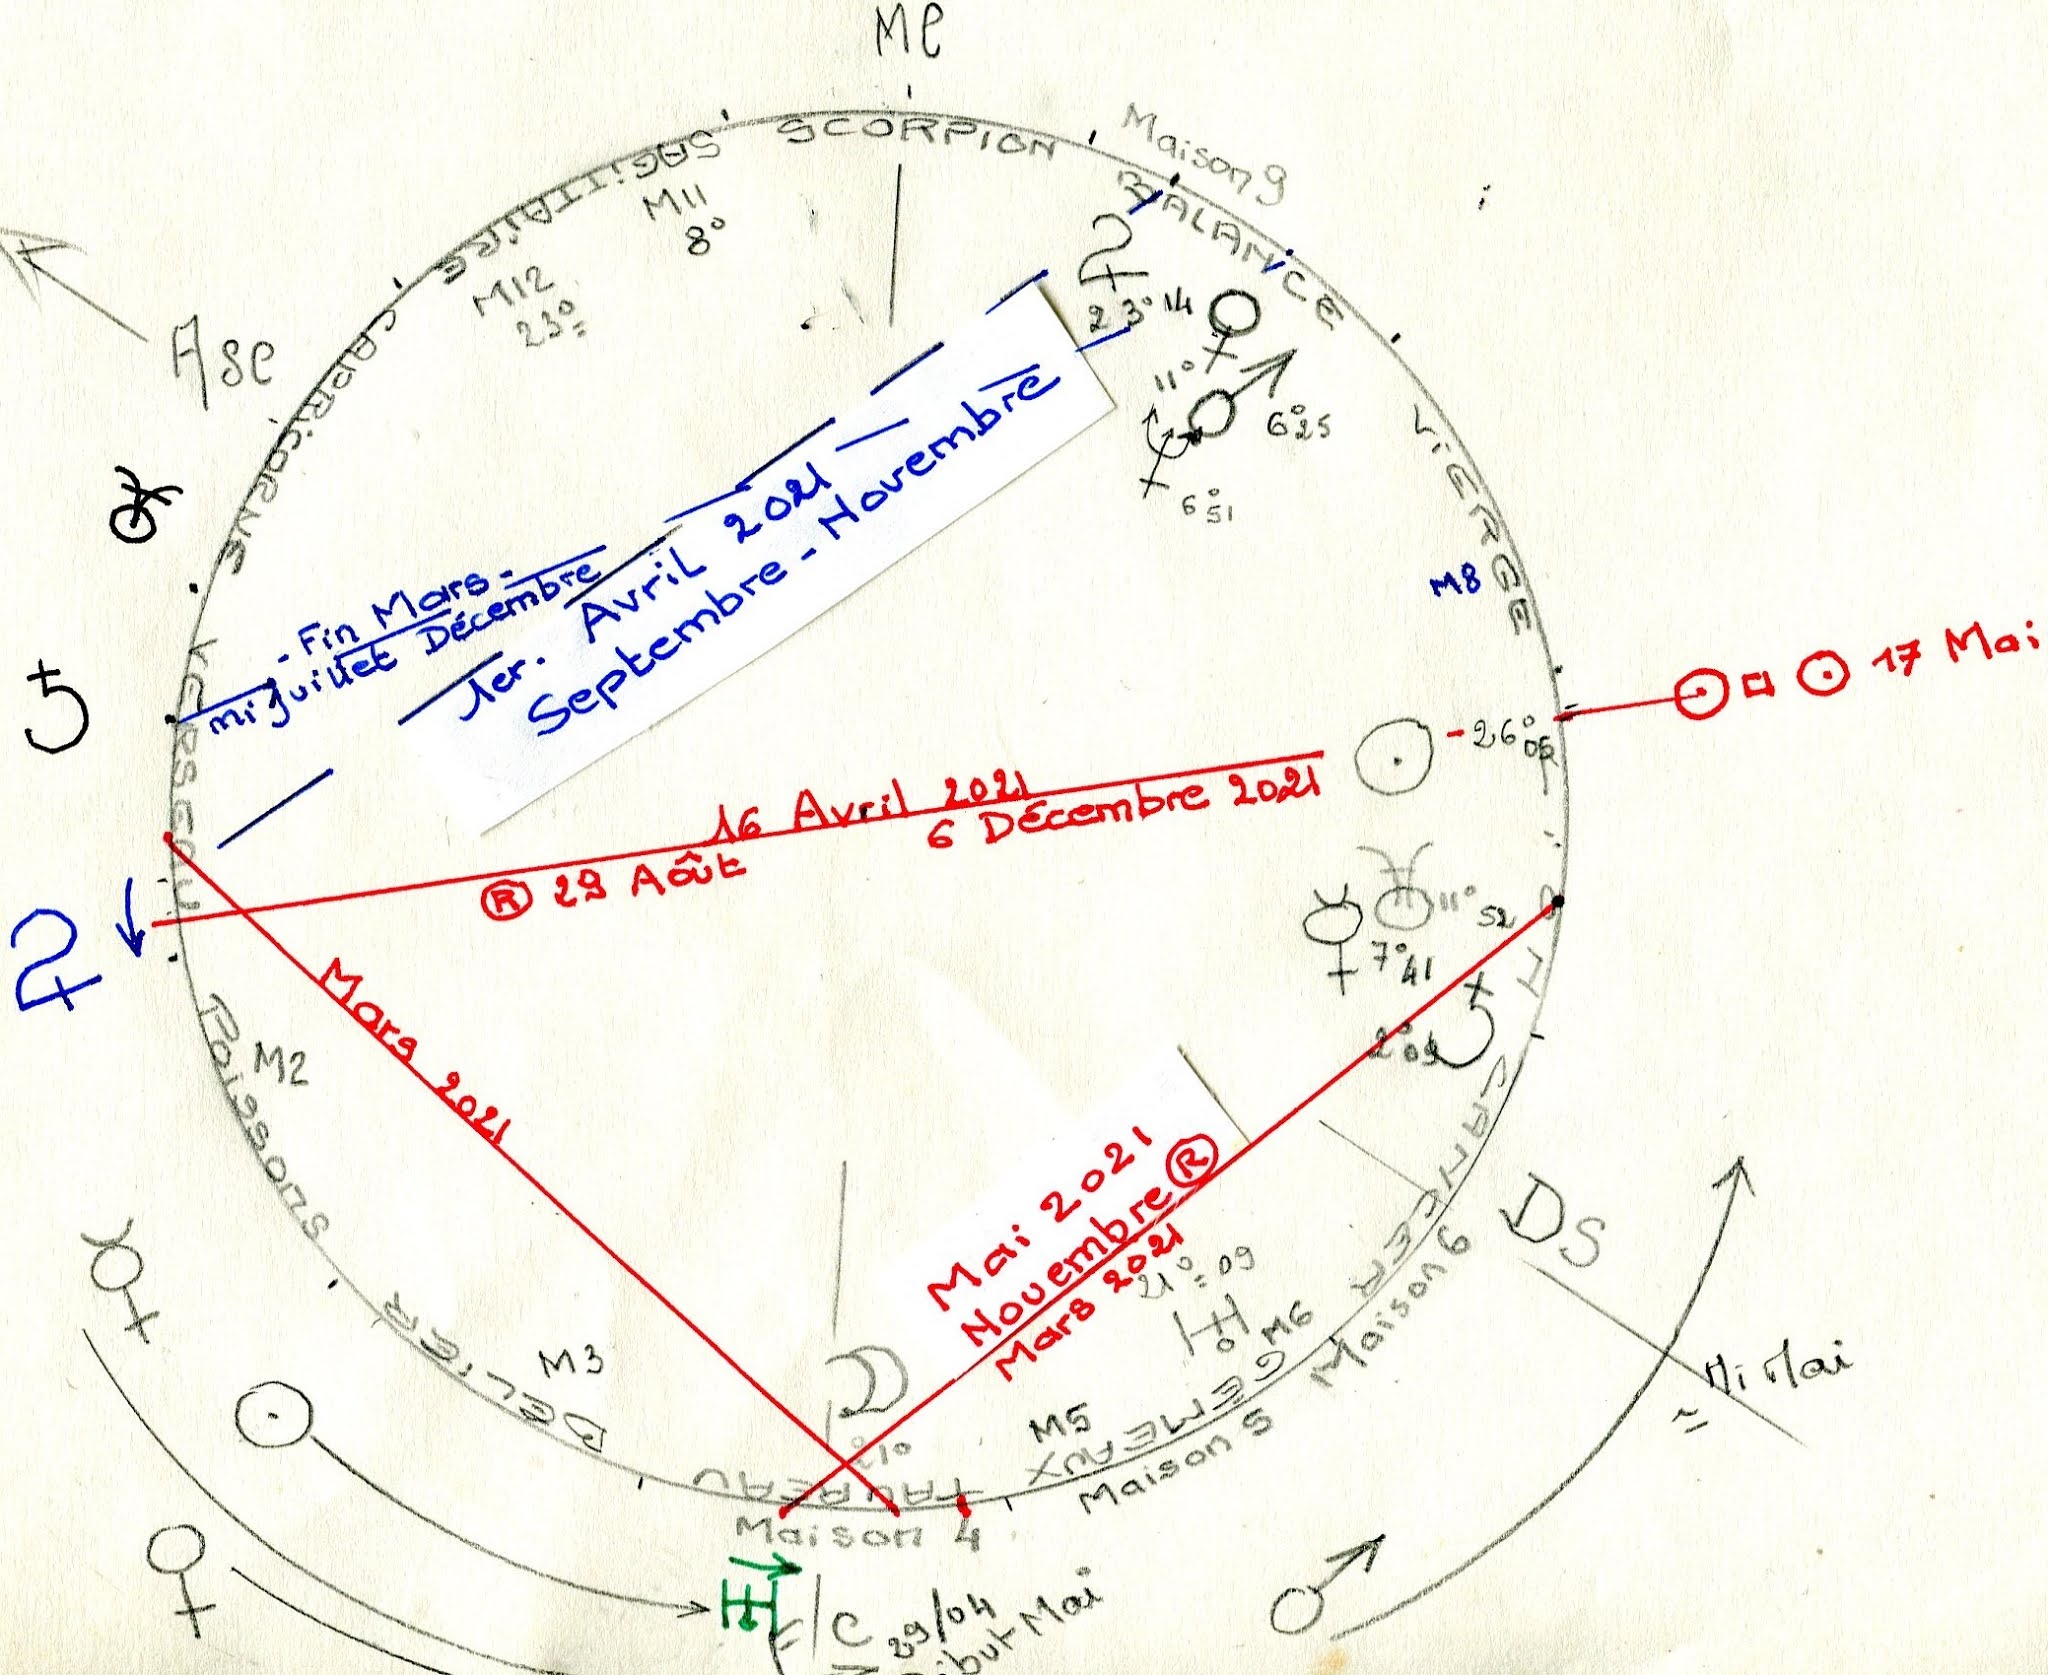 MC
Maison 9
SCORPION
BALANCE
SAGITTAIRE
M11
8°
M12
23°
23° 14
11°
6°25
6°51
Asc
CAPRICORNE
VIERGE
M8
- Fin Mars -
mi Juillet Décembre
1er. Avril 2021
Septembre - Novembre
17 Mai
26°05
VERSEAU
16 Avril 2021
6 Décembre 2021
R 29 Août
11° 52
7°41
2°09
CANCER
Mars 2021
M2
Poissons
Mai 2021
Novembre R
Mars 2021
21°09
DS
Maison 6
M6
Mi Mai
BELIER
M3
M5
GEMEAUX
Maison 5
21°
TAUREAU
Maison 4
F/C 29/04
Début Mai